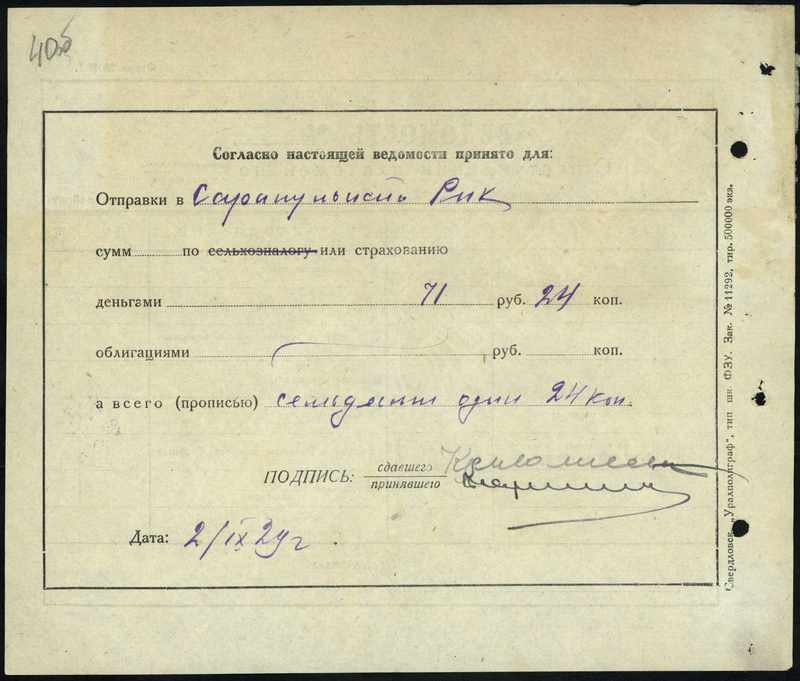 40об
Согласно настоящей ведомости принято для:
Отправки в Сарапульский Рик
сумм по сельхозналогу или страхованию
деньгами 71 руб. 24 коп.
облигациями руб. коп.
а всего (прописью) семьдесят один 24 коп.
ПОДПИСЬ: сдавшего
принявшего
Дата: 2/IX 29 г
Свердловск, „Уралполиграф“, тип шк ФЗУ. Зак. № 11292, тир. 500000 экз.